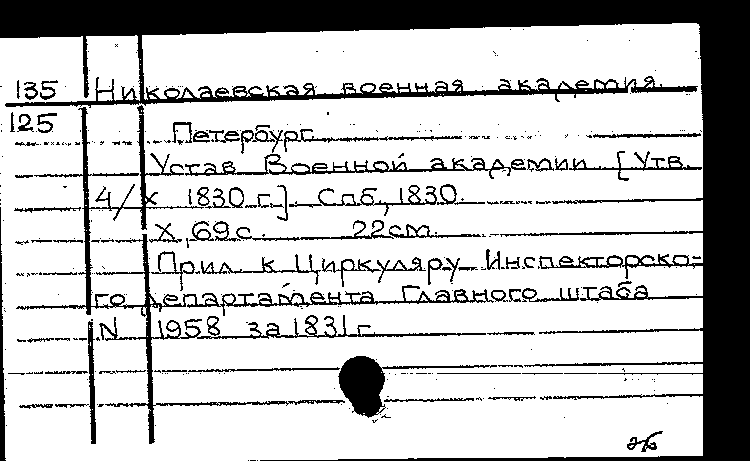 135 Николаевская военная академия.
125
Петербург
Устав Военной академии. [Утв.
4/X 1830 г.]. Спб., 1830.
X, 69 с. 22 см.
Прил. к Циркуляру Инспекторско-
го департамента Главного штаба
N 1958 за 1831 г.